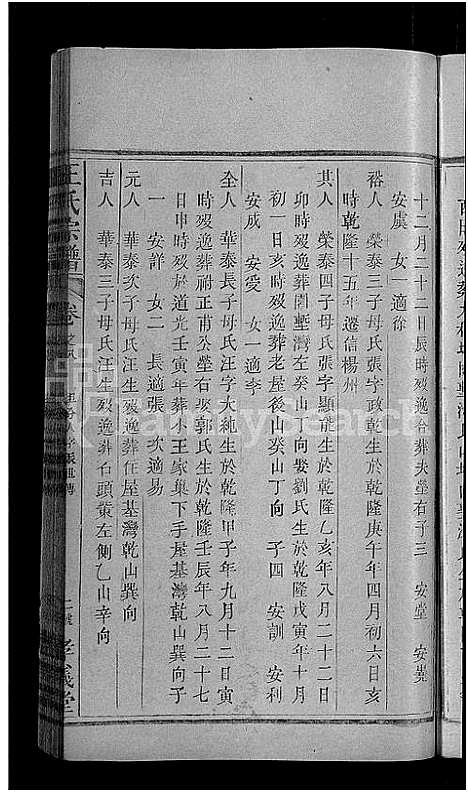 十二月二十二日辰時歿逸合葬夫塋右子三 安堂 安堯
安虞 女一適徐
裕人 榮泰三子母氏張字政乾生於乾隆庚午年四月初六日亥
時乾隆十五年遷信楊州
其人 榮泰四子母氏張字顯能生於乾隆乙亥年八月二十二日
卯時歿逸葬園塹灣左癸山丁向娶劉氏生於乾隆戊寅年十月
初一日亥時歿逸葬老屋後山癸山丁向 子四 安訓 安利
安成 安愛 女一適李
全人 華泰長子母氏汪字大純生於乾隆甲子年九月十二日寅
時歿逸葬祠正甫公塋右娶郭氏生於乾隆壬辰年八月二十七
日申時歿於道光壬寅年葬小王家集下手屋基灣乾山巽向子
一 安詳 女二 長適張 次適易
元人 華泰次子母氏汪生歿逸葬任屋基灣乾山巽向
吉人 華泰三子母氏汪生歿逸葬石頭嘴左側乙山辛向
王氏宗譜 卷之八
孝義堂
FamilySearch